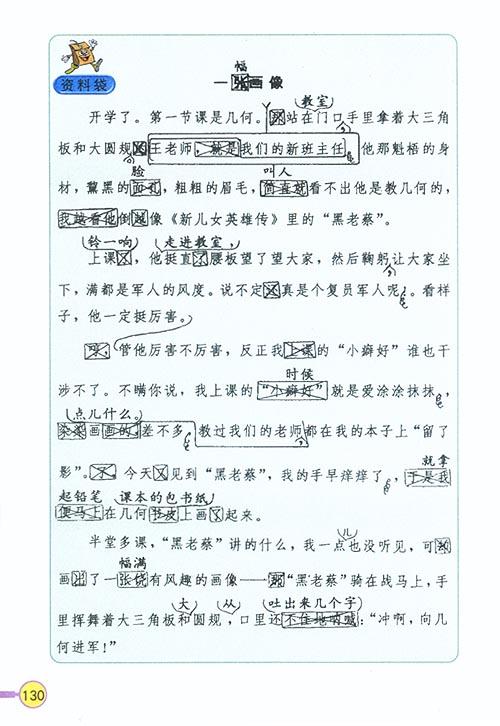 资料袋
幅
一张画像
教室
开学了。第一节课是几何。站在门口手里拿着大三角
板和大圆规 王老师，就是我们的新班主任。他那魁梧的身
脸 叫人
材，黧黑的面孔，粗粗的眉毛，简直就看不出他是教几何的，
我越看他倒越像《新儿女英雄传》里的“黑老蔡”。
铃一响 走进教室，
上课了，他挺直了腰板望了望大家，然后鞠躬让大家坐
下，满都是军人的风度。说不定真是个复员军人呢。看样
子，他一定挺厉害。
管他厉害不厉害，反正我上课的“小癖好”谁也干
时候
涉不了。不瞒你说，我上课的“小癖好”就是爱涂涂抹抹，
点儿什么。
染染画画的，差不多，教过我们的老师都在我的本子上“留了
影”。今天见到“黑老蔡”，我的手早痒痒了，于是我
就拿
起铅笔 课本的包书纸
便马上在几何书皮上画起来。
儿
半堂多课，“黑老蔡”讲的什么，我一点也没听见，可
幅满
画出了一张饶有风趣的画像——“黑老蔡”骑在战马上，手
大 从 吐出来几个字
里挥舞着大三角板和圆规，口里还不住地呐喊：“冲啊，向几
何进军！”
130